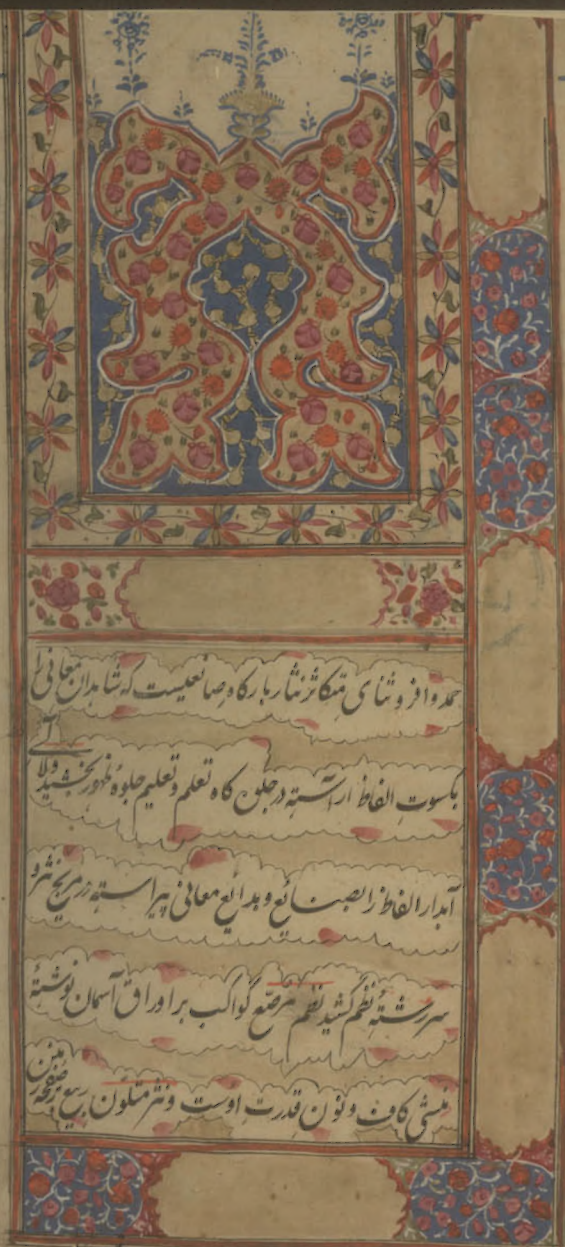 حمد وافر و ثنای متکاثر نثار بارکاه صانعیست که شاهدان معانی را
بکسوت الفاظ آراسته در جلوه کاه تعلم و تعلیم جلوهٔ ظهور بخشید و لآلی
آبدار الفاظ را بصنائع و بدایع معانی پیراسته در بیخ نثر و
سررشتهٔ نظم کشید نظم مرصع کواکب بر اوراق آسمان نوشتهٔ
منشی کاف و نون قدرت اوست و نثر متلون ربیع بر صفحهٔ زمین